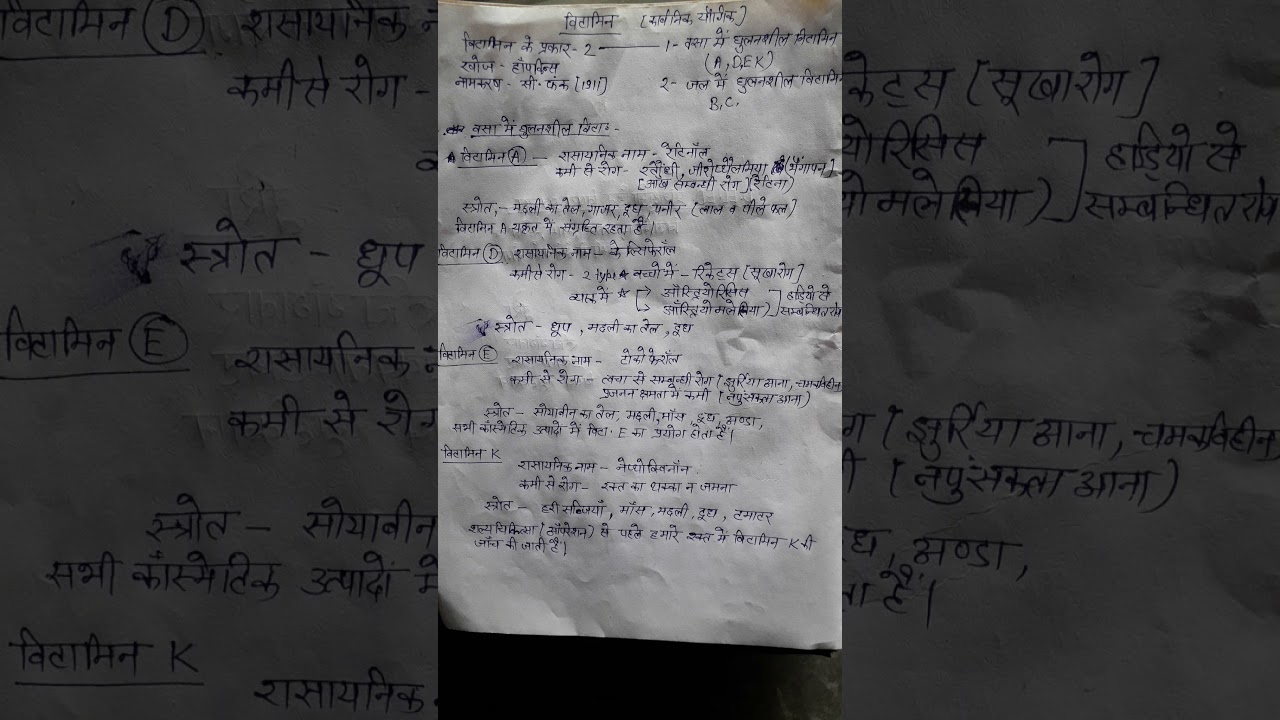 विटामिन [कार्बनिक यौगिक]
विटामिन के प्रकार - 2 — 1- वसा में घुलनशील विटामिन
(A, D, E K)
खोज - हॉपकिन्स
नामकरण - सी. फंक [1911]
2- जल में घुलनशील विटामिन
B, C,
वसा में घुलनशील विटा॰ :-
विटामिन (A) — रासायनिक नाम - रेटिनॉल
कमी से रोग - रतौंधी, जीरोप्थैलमिया [भैंगापन]
[आँख सम्बन्धी रोग] रेटिना)
स्त्रोत, - मछली का तेल, गाजर, दूध, पनीर (लाल व पीले फल)
विटामिन A यकृत में संग्रहित रहता है।
विटामिन (D) रासायनिक नाम - केल्सिफेरॉल
कमी से रोग - 2 type बच्चो में - रिकेट्स [सूखा रोग]
ऑस्ट्रियोरिसिस
ऑस्ट्रियोमलेशिया) ] हड्डियो से सम्बन्धित रोग
स्त्रोत - धूप, मछली का तेल, दूध
विटामिन (E) रासायनिक नाम - टोकोफेरॉल
कमी से रोग - त्वचा से सम्बन्धी रोग (झुर्रिया आना, चमकविहीन
प्रजनन क्षमता में कमी (नपुंसकता आना)
स्त्रोत - सोयाबीन का तेल, मछली, माँस, दूध, अण्डा,
सभी कॉस्मेटिक उत्पादो में विटा. E का प्रयोग होता है।
विटामिन K
रासायनिक नाम - नेप्थोक्विनॉन
कमी से रोग - रक्त का थक्का न जमना
स्त्रोत - हरी सब्जियाँ, माँस, मछली, दूध, टमाटर
शल्य चिकित्सा (ऑपरेशन) से पहले हमारे रक्त में विटामिन K की
जाँच की जाती है।